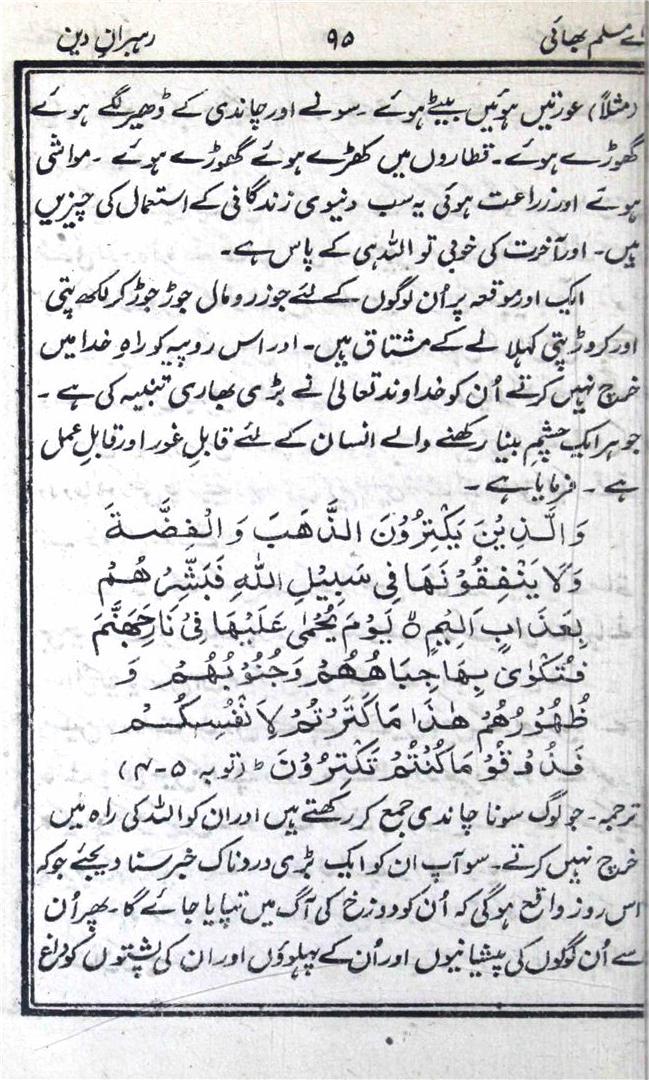 اے مسلم بھائی ۹۵ رہبرانِ دین
(مثلاً) عورتیں ہوئیں بیٹے ہوئے ۔ سونے اور چاندی کے ڈھیر لگے ہوئے
گھوڑے ہوئے ۔ قطاروں میں کھڑے ہوئے گھوڑے ہوئے ۔ مواشی
ہوئے اور زراعت ہوئی یہ سب دنیوی زندگانی کے استعمال کی چیزیں
ہیں ۔ اور آخرت کی خوبی تو اللہ ہی کے پاس ہے ۔
ایک اور موقعہ پر اُن لوگوں کے لئے جو زر و مال جوڑ جوڑ کر لکھ پتی
اور کروڑ پتی کہلانے کے مشتاق ہیں ۔ اور اس روپیہ کو راہِ خدا میں
خرچ نہیں کرتے اُن کو خداوند تعالیٰ نے بڑی بھاری تنبیہ کی ہے ۔
جو ہر ایک چشم بینا رکھنے والے انسان کے لئے قابلِ غور اور قابلِ عمل
ہے ۔ فرمایا ہے ۔
وَالَّذِیْنَ یَکْنِزُوْنَ الذَّهَبَ وَالْفِضَّةَ
وَلَا یَنْفِقُوْنَهَا فِی سَبِیْلِ اللهِ فَبَشِّرْهُمْ
بِعَذَابٍ اَلِیْمٍ ۝ یَوْمَ یُحْمٰی عَلَیْهَا فِیْ نَارِ جَهَنَّمَ
فَتُکْوٰی بِهَا جِبَاهُهُمْ وَجُنُوْبُهُمْ وَ
ظُهُوْرُهُمْ هٰذَا مَا کَنَزْتُمْ لِاَنْفُسِکُمْ
فَذُوْقُوْ مَا کُنْتُمْ تَکْنِزُوْنَ ط (توبہ ۵-۴)
ترجمہ ۔ جو لوگ سونا چاندی جمع کر رکھتے ہیں اور ان کو اللہ کی راہ میں
خرچ نہیں کرتے ۔ سو آپ ان کو ایک بڑی دردناک خبر سنا دیجئے جو کہ
اس روز واقع ہوگی کہ اُن کو دوزخ کی آگ میں تپایا جائے گا ۔ پھر اُن
سے اُن لوگوں کی پیشانیوں اور اُن کے پہلوؤں اور ان کی پشتوں کو داغ